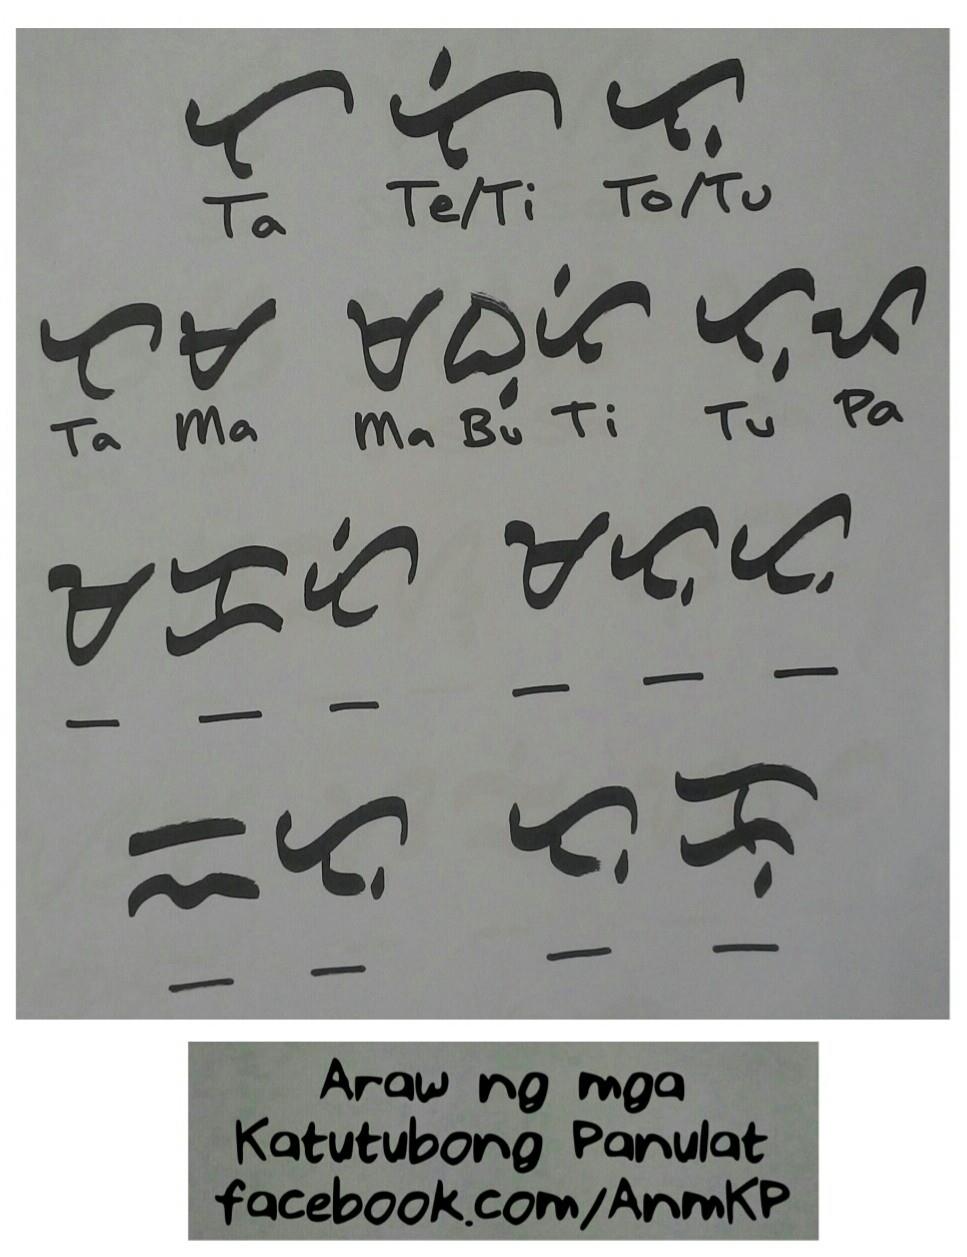 ᜆ ᜆᜒ ᜆᜓ
Ta Te/Ti To/Tu
ᜆᜋ ᜋᜊᜓᜆᜒ ᜆᜓᜉ
Ta Ma Ma Bu Ti Tu Pa
ᜋᜃᜆᜒ ᜋᜆᜓᜆᜓ
ᜁᜆᜓ ᜆᜓᜃᜓ
Araw ng mga
Katutubong Panulat
facebook.com/AnmKP